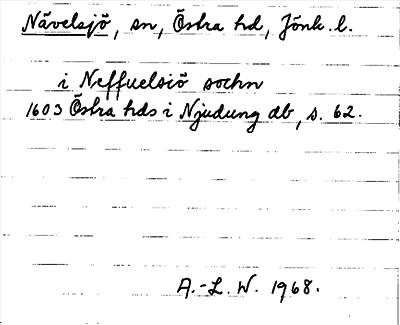 Nävelsjö, sn, Östra hd, Jönk. l.
i Neffuelsiö sochn
1603 Östra hds i Njudung db, s. 62.
A.-L. W. 1968.